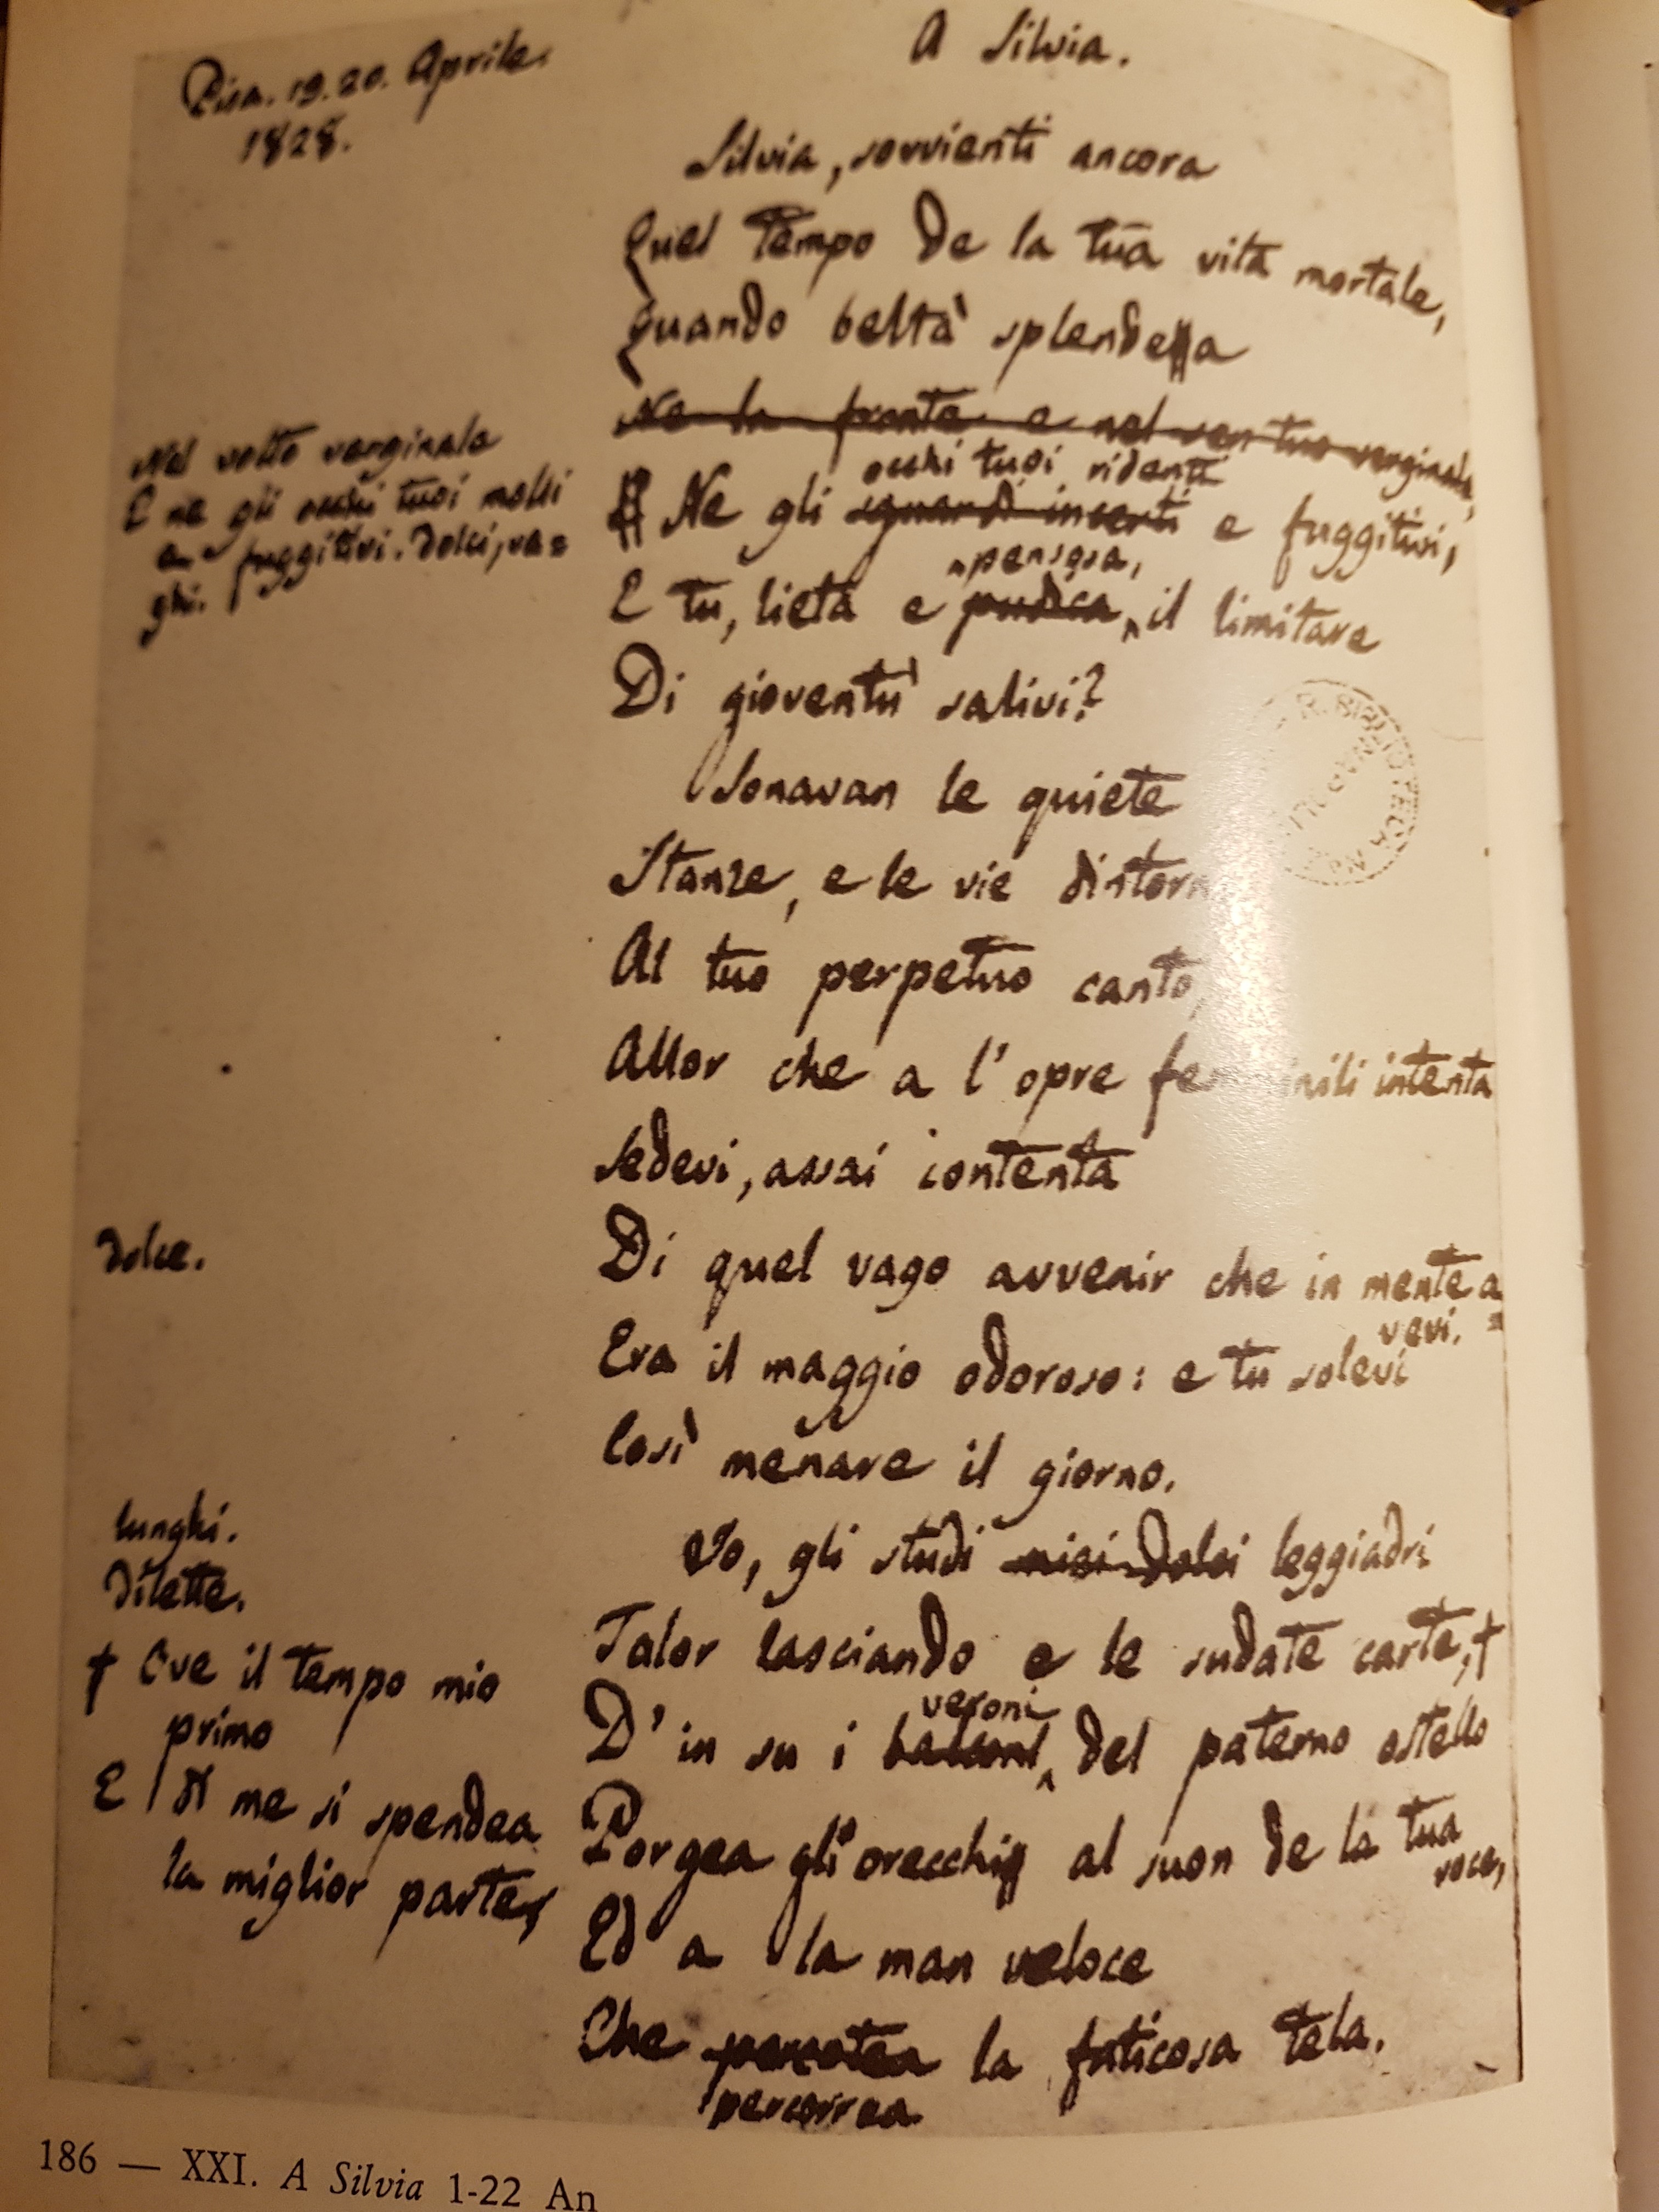 Pisa. 19. 20. Aprile.
1828.
A Silvia.
Silvia, sovvienti ancora
Quel tempo de la tua vita mortale,
Quando beltà splendea
Ne la fronte e nel sen tuo verginale,
Nel volto verginale
E ne gli occhi tuoi molli
e fuggitivi. Dolci, va=
ghi.
occhi tuoi ridenti
Ne gli sguardi incerti e fuggitivi,
pensosa,
E tu, lieta e pudica, il limitare
Di gioventù salivi?
Sonavan le quiete
Stanze, e le vie dintorn
Al tuo perpetuo canto,
Allor che a l'opre femminili intenta
Sedevi, assai contenta
dolce.
Di quel vago avvenir che in mente a=
vevi.
Era il maggio odoroso: e tu solevi
Così menare il giorno.
lunghi.
Dilette.
Io, gli studi miei dolci leggiadri
Talor lasciando e le sudate carte, †
† Ove il tempo mio
primo
E di me si spendea
la miglior parte,
veroni
D' in su i balconi del paterno ostello
Porgea gli orecchi al suon de la tua
voce,
Ed a la man veloce
Che percotea la faticosa tela.
percorrea
R. BIBLIOTECA
186 — XXI. A Silvia 1-22 An